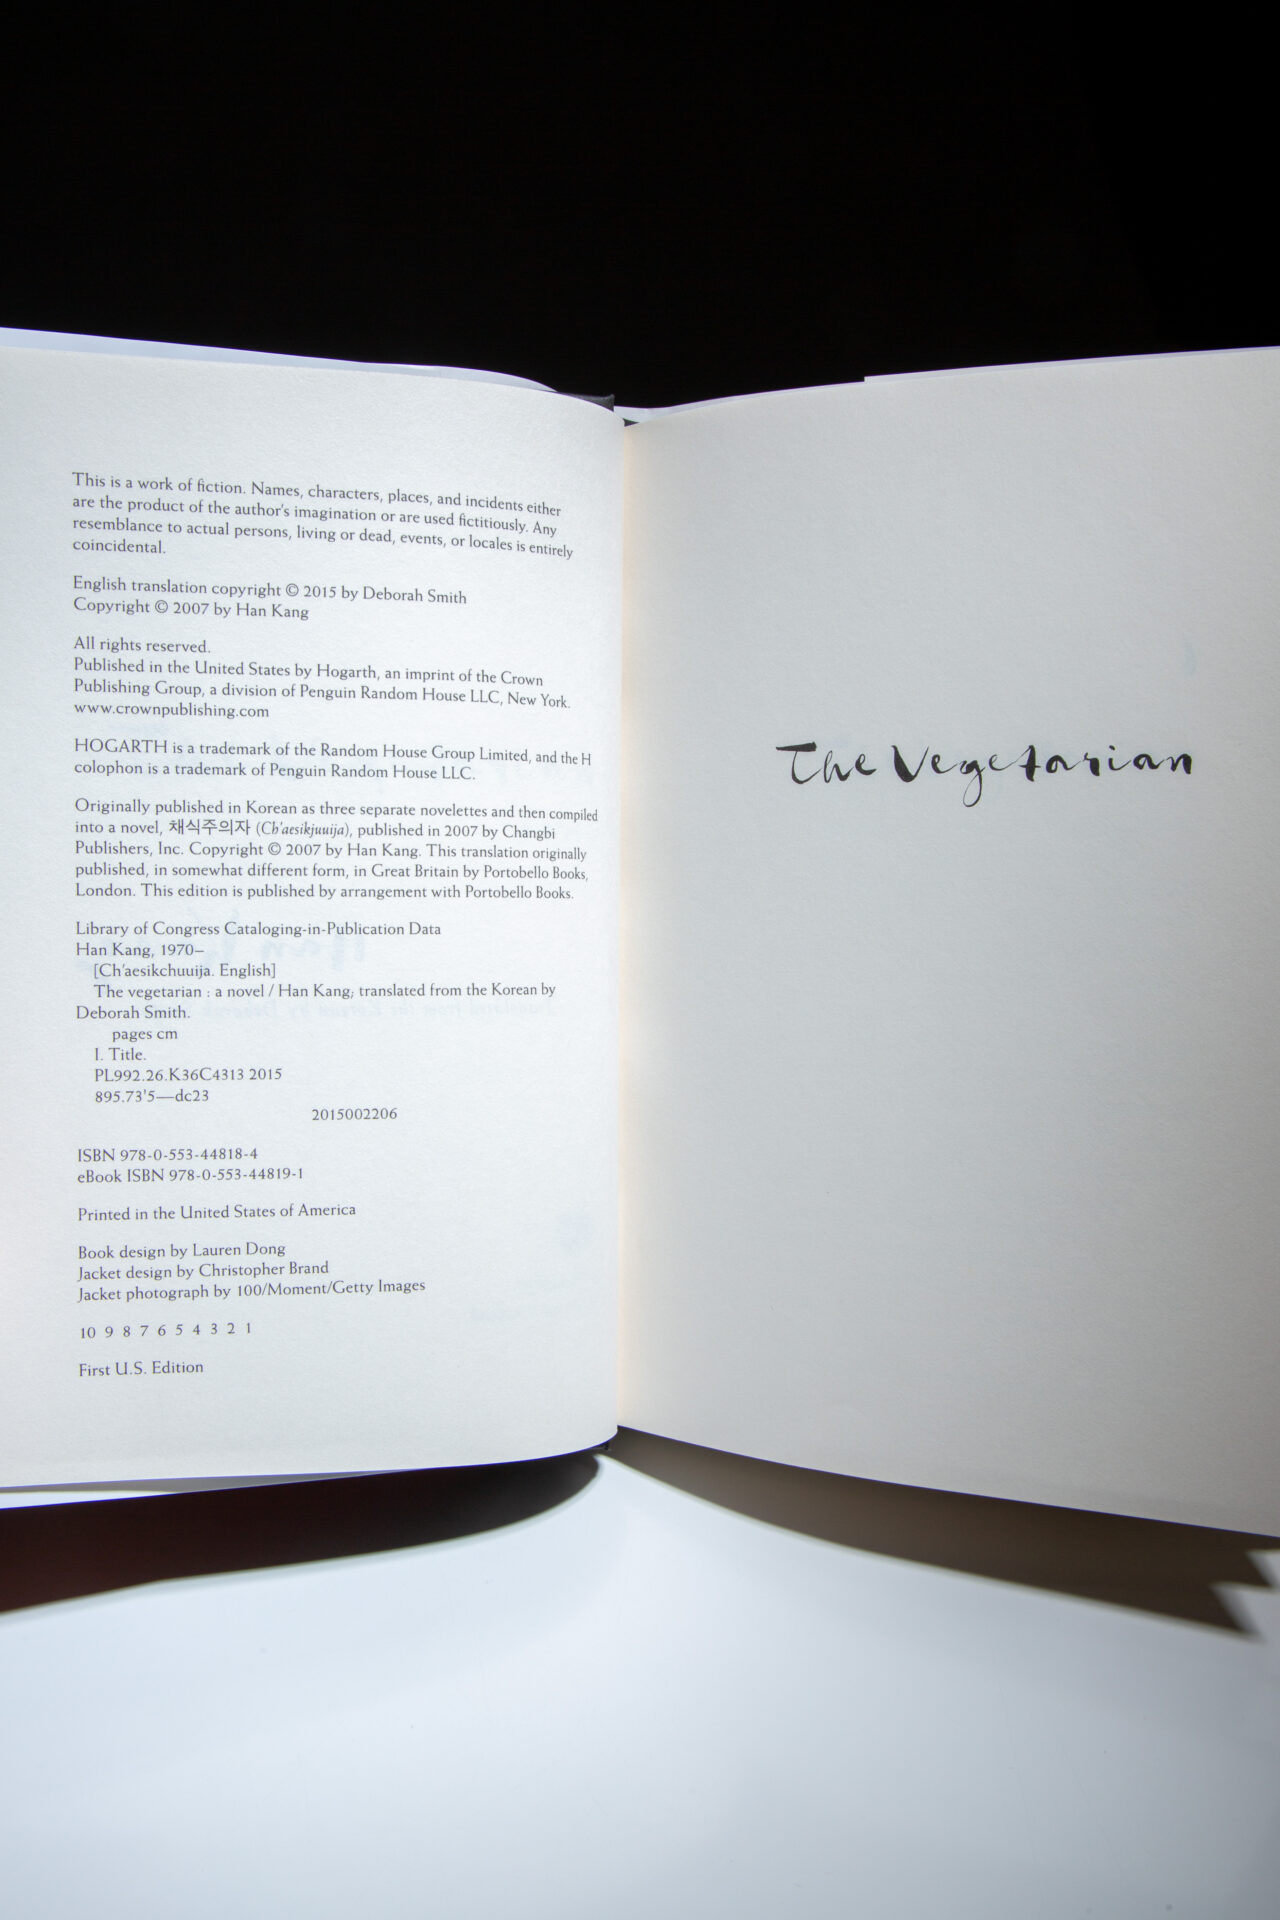 This is a work of fiction. Names, characters, places, and incidents either
are the product of the author's imagination or are used fictitiously. Any
resemblance to actual persons, living or dead, events, or locales is entirely
coincidental.
English translation copyright © 2015 by Deborah Smith
Copyright © 2007 by Han Kang
All rights reserved.
Published in the United States by Hogarth, an imprint of the Crown
Publishing Group, a division of Penguin Random House LLC, New York.
www.crownpublishing.com
HOGARTH is a trademark of the Random House Group Limited, and the H
colophon is a trademark of Penguin Random House LLC.
Originally published in Korean as three separate novelettes and then compiled
into a novel, 채식주의자 (Ch'aesikjuuija), published in 2007 by Changbi
Publishers, Inc. Copyright © 2007 by Han Kang. This translation originally
published, in somewhat different form, in Great Britain by Portobello Books,
London. This edition is published by arrangement with Portobello Books.
Library of Congress Cataloging-in-Publication Data
Han Kang, 1970–
[Ch'aesikchuuija. English]
The vegetarian : a novel / Han Kang; translated from the Korean by
Deborah Smith.
pages cm
I. Title.
PL992.26.K36C4313 2015
895.73'5—dc23
2015002206
ISBN 978-0-553-44818-4
eBook ISBN 978-0-553-44819-1
Printed in the United States of America
Book design by Lauren Dong
Jacket design by Christopher Brand
Jacket photograph by 100/Moment/Getty Images
10 9 8 7 6 5 4 3 2 1
First U.S. Edition
The Vegetarian